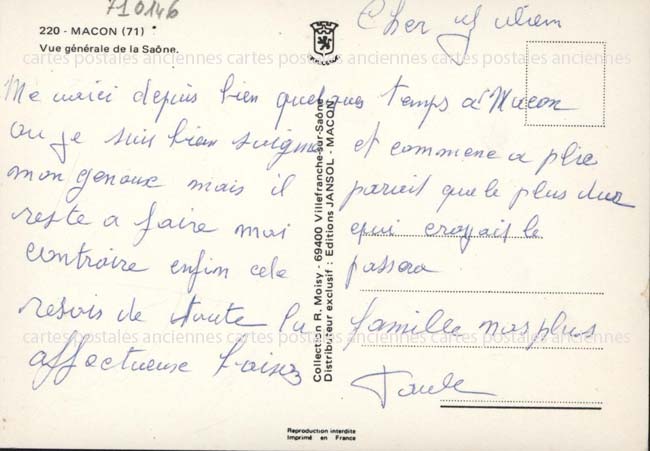 710146
220 - MACON (71)
Vue générale de la Saône.
Cher
cartes postales anciennes cartes postales anciennes cartes postales anciennes
Me voici depuis bien quelques temps a Macon
ou je suis bien soigne et commence a plie
mon genoux mais il parait que le plus dur
reste a faire moi qui croyait le
contraire enfin cela passera
resois de toute la famille nos plus
cartes postales anciennes cartes postales anciennes cartes postales anciennes
affectueuse baises
Paule
Collection R. Moisy - 69400 Villefranche-sur-Saône
Distributeur exclusif : Editions JANSOL - MACON.
Reproduction interdite
Imprimé en France